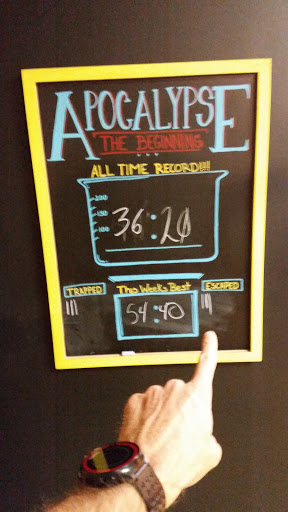 APOCALYPSE
THE BEGINNING
ALL TIME RECORD!!!!
200
150
100
36:20
TRAPPED
This Weeks Best
ESCAPED
54:40